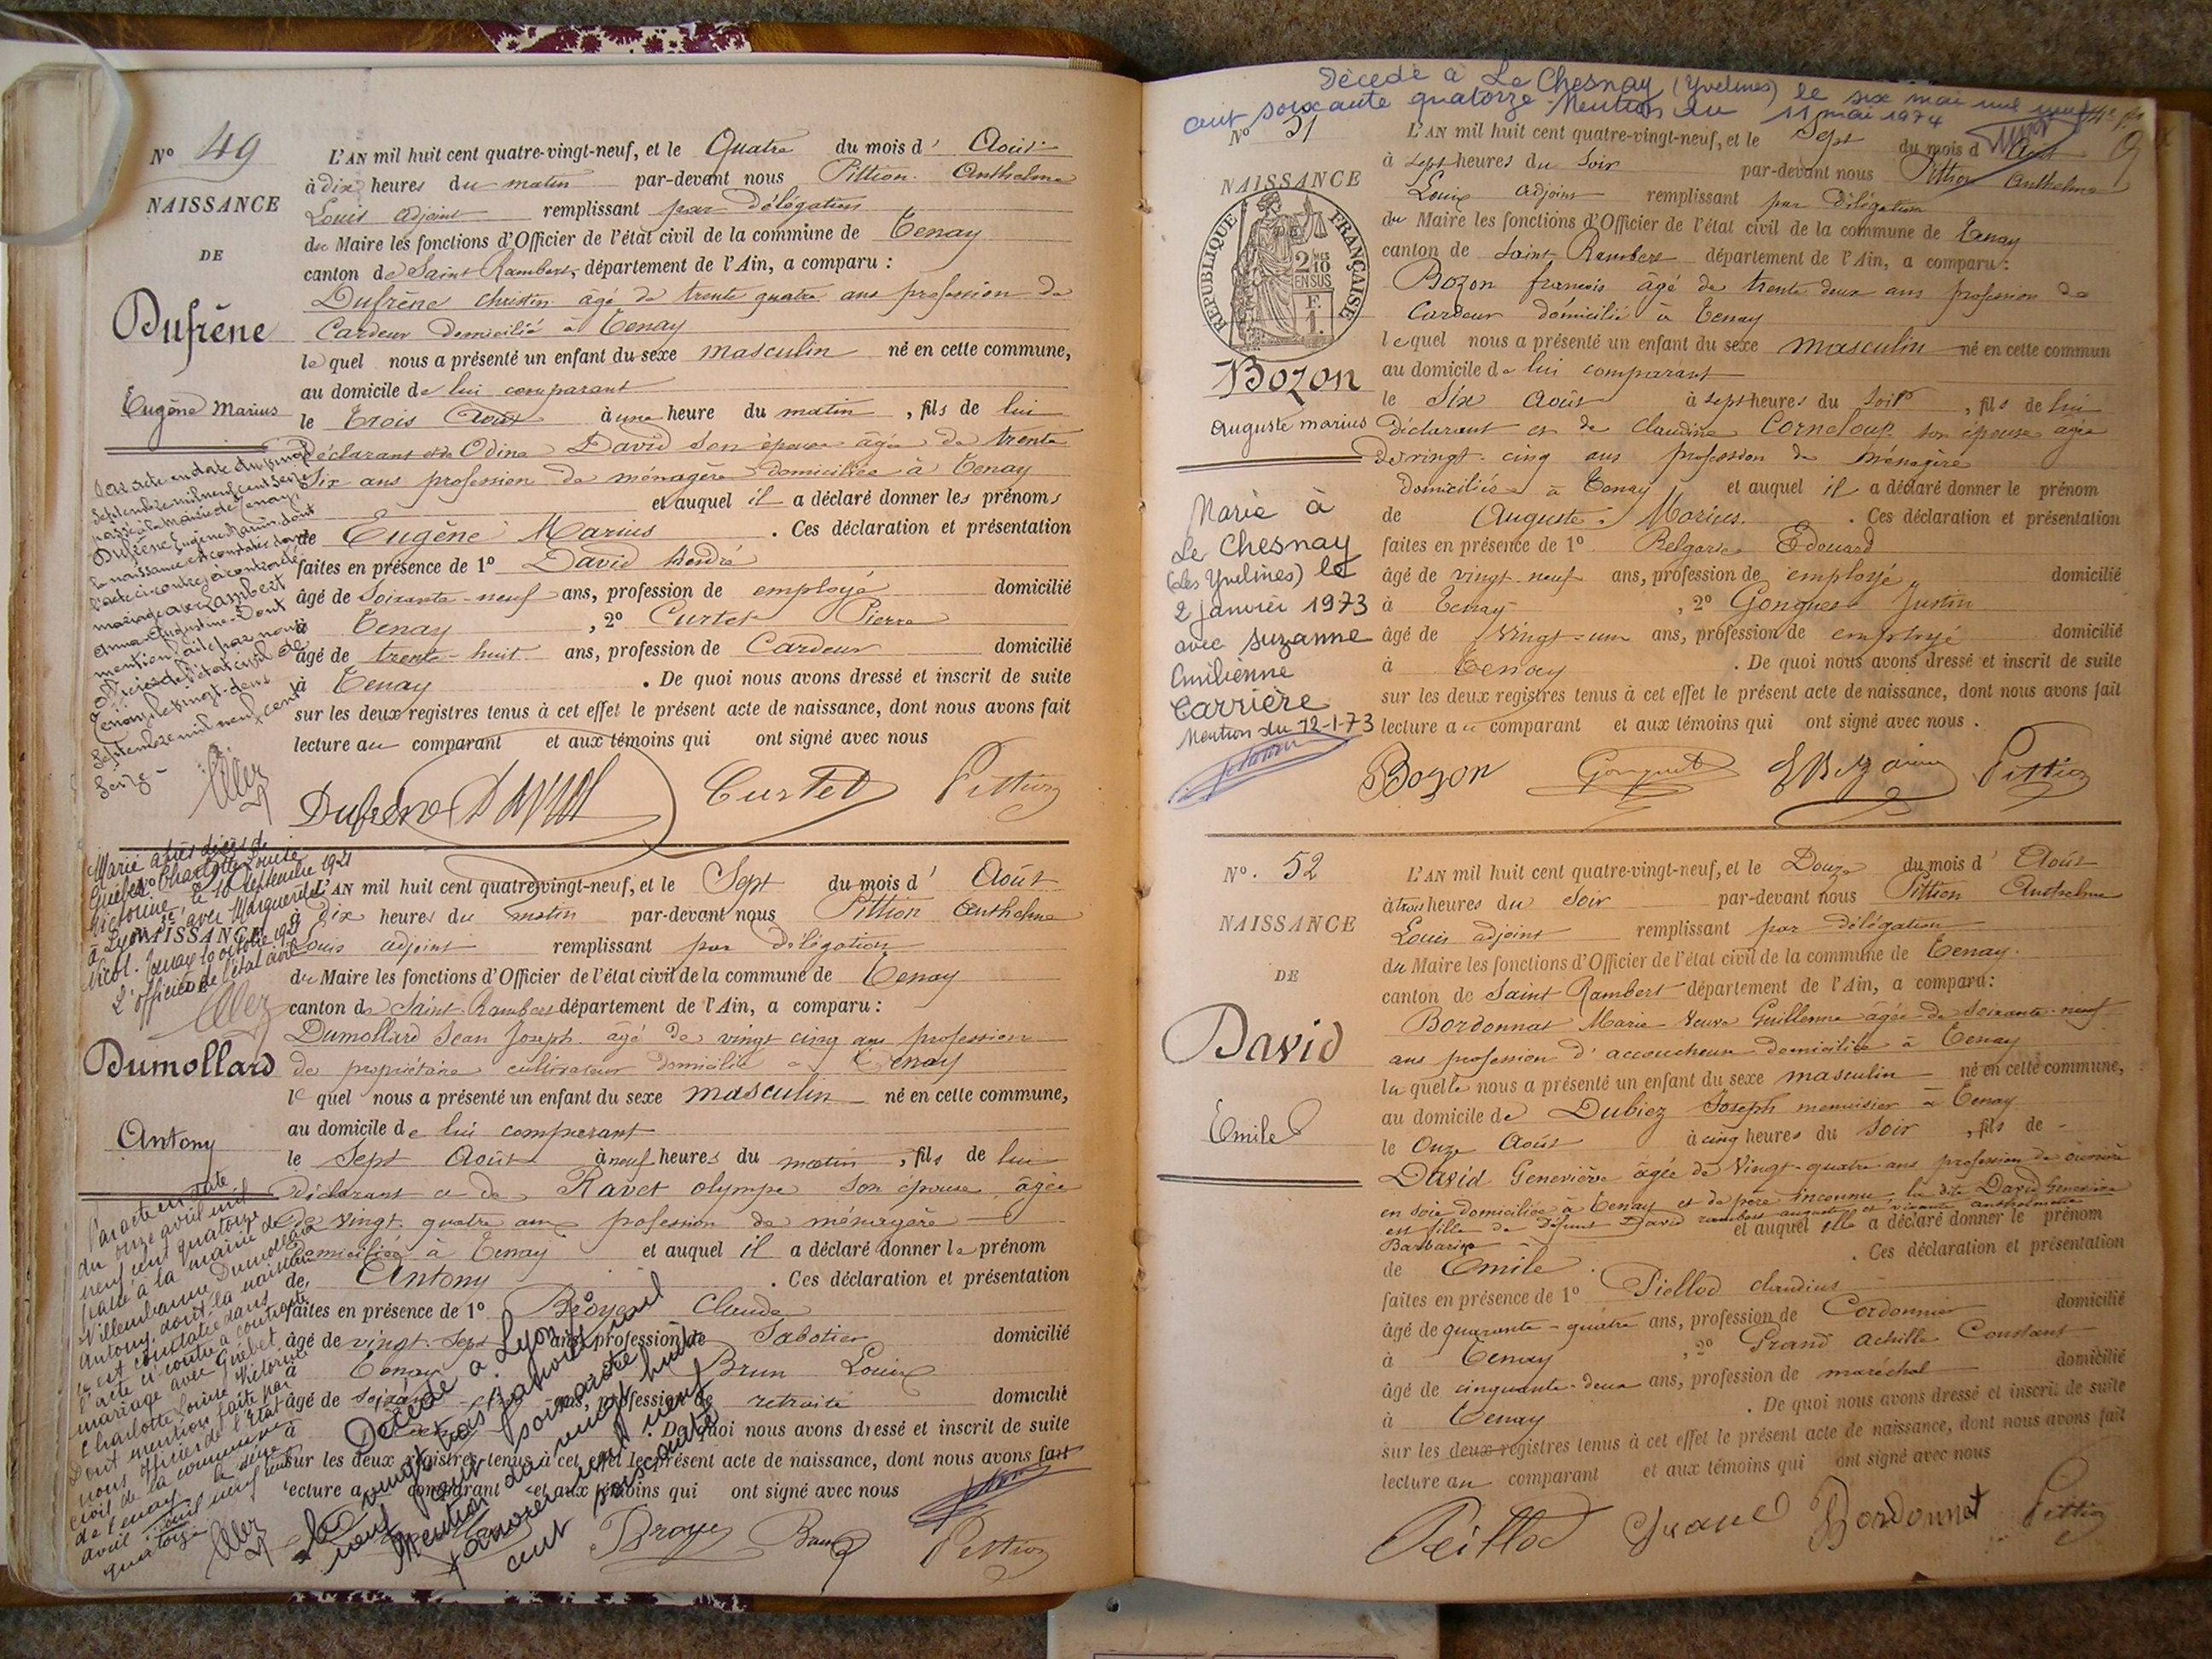 N° 49
NAISSANCE
DE
Dufrène
Eugène Marius
L'AN mil huit cent quatre-vingt-neuf, et le Quatre du mois d' Août
à dix heures du matin par-devant nous Pittion Anthelme
Louis adjoint remplissant par Délégation
du Maire les fonctions d'Officier de l'état civil de la commune de Tenay
canton de Saint Rambert, département de l'Ain, a comparu :
Dufrène christin âgé de trente quatre ans profession de
Cardeur domicilié à Tenay
lequel nous a présenté un enfant du sexe masculin né en cette commune,
au domicile de lui comparant
le Trois Août à une heure du matin, fils de lui
Déclarant et de Odine David son épouse âgée de trente
Six ans profession de ménagère domiciliée à Tenay
et auquel il a déclaré donner les prénoms
de Eugène Marius. Ces déclaration et présentation
faites en présence de 1° David
âgé de Soixante-neuf ans, profession de employé domicilié
à Tenay, 2° Curtet Pierre
âgé de trente-huit ans, profession de Cardeur domicilié
à Tenay. De quoi nous avons dressé et inscrit de suite
sur les deux registres tenus à cet effet le présent acte de naissance, dont nous avons fait
lecture au comparant et aux témoins qui ont signé avec nous
Par acte en date du vingt
Septembre mil neuf cent seize
passé à la mairie de Tenay,
Dufrène Eugène Marius, dont
la naissance est constatée dans
l'acte ci-contre, a contracté
mariage avec Lambert
Anna Augustine. Dont
mention faite par nous
officier de l'état civil de
Tenay, le vingt-deux
Septembre mil neuf cent
Seize
Dufrène David Curtet Pittion
Marié après décès de
Guébet Charlotte Louise
Victorine, le 10 Septembre 1921
à Lyon 3e avec Marguerite
Nicol. Tenay 10 octobre 1921
L'officier de l'état civil
NAISSANCE
DE
Dumollard
Antony
L'AN mil huit cent quatre-vingt-neuf, et le Sept du mois d' Août
à dix heures du matin par-devant nous Pittion Anthelme
Louis adjoint remplissant par délégation
du Maire les fonctions d'Officier de l'état civil de la commune de Tenay
canton de Saint-Rambert département de l'Ain, a comparu :
Dumollard Jean Joseph âgé de vingt cinq ans profession
de propriétaire cultivateur domicilié à Tenay
lequel nous a présenté un enfant du sexe masculin né en cette commune,
au domicile de lui comparant
le Sept Août à neuf heures du matin, fils de lui
Déclarant et de Ravet olympe son épouse âgée
de vingt quatre ans profession de ménagère
domiciliée à Tenay et auquel il a déclaré donner le prénom
de Antony. Ces déclaration et présentation
faites en présence de 1° Broyer Claude
âgé de vingt-sept ans, profession de Sabotier domicilié
à Tenay Brun Louis
âgé de ans, profession de retraité domicilié
à Tenay. De quoi nous avons dressé et inscrit de suite
sur les deux registres tenus à cet effet le présent acte de naissance, dont nous avons fait
lecture au comparant et aux témoins qui ont signé avec nous
Par acte en date
du onze avril mil
neuf cent quatorze
passé à la mairie de
Villeurbanne, Dumollard
Antony, dont la naissance
est constatée dans
l'acte ci-contre a contracté
mariage avec Guébet
Charlotte Louise Victorine
Dont mention faite par
nous officier de l'état
civil de la commune
de Tenay, le seize
avril mil neuf cent
quatorze
Décédé à Lyon
le vingt trois janvier mil
neuf cent soixante
Mention du vingt huit
janvier mil neuf
cent soixante
Broyer Brun Pittion
Décédé à Le Chesnay (Yvelines) le six mai mil neuf
cent soixante quatorze. Mention du 11 mai 1974
N° 51
NAISSANCE
RÉPUBLIQUE FRANÇAISE
2 MES
10
EN SUS
F.
1.
Bozon
Auguste Marius
L'AN mil huit cent quatre-vingt-neuf, et le Sept du mois d' Août
à sept heures du Soir par-devant nous Pittion Anthelme
Louis adjoint remplissant par Délégation
du Maire les fonctions d'Officier de l'état civil de la commune de Tenay
canton de Saint Rambert département de l'Ain, a comparu :
Bozon francois âgé de trente deux ans profession de
Cardeur domicilié à Tenay
lequel nous a présenté un enfant du sexe masculin né en cette commun
au domicile de lui comparant
le Six Août à sept heures du Soir, fils de lui
Déclarant et de Claudine Corneloup son épouse agée
de vingt-cinq ans profession de Ménagère
domiciliée à Tenay et auquel il a déclaré donner le prénom
de Auguste Marius. Ces déclaration et présentation
faites en présence de 1° Edouard
âgé de vingt-neuf ans, profession de employé domicilié
à Tenay, 2° Gonguet Justin
âgé de Vingt-un ans, profession de employé domicilié
à Tenay. De quoi nous avons dressé et inscrit de suite
sur les deux registres tenus à cet effet le présent acte de naissance, dont nous avons fait
lecture au comparant et aux témoins qui ont signé avec nous.
Marié à
Le Chesnay
(les Yvelines) le
2 janvier 1973
avec Suzanne
Emilienne
Carrière
Mention du 12-1-73
Bozon Gonguet Pittion
N° 52
NAISSANCE
DE
David
Emile
L'AN mil huit cent quatre-vingt-neuf, et le Douze du mois d' Août
à trois heures du Soir par-devant nous Pittion Anthelme
Louis adjoint remplissant par délégation
du Maire les fonctions d'Officier de l'état civil de la commune de Tenay.
canton de Saint Rambert département de l'Ain, a comparu :
Bordonnat Marie Veuve Guillerme âgée de Soixante-neuf
ans profession d'accoucheuse domiciliée à Tenay
laquelle nous a présenté un enfant du sexe masculin né en cette commune,
au domicile de Dubiez Joseph menuisier à Tenay
le Onze Août à cinq heures du Soir, fils de
David Geneviève âgée de Vingt-quatre ans profession de ouvrière
en soie domiciliée à Tenay et de père inconnu, la dite David Geneviève
est fille de Défunt David rambert auguste et vivante
Barbarine et auquel elle a déclaré donner le prénom
de Emile. Ces déclaration et présentation
faites en présence de 1° Piellod claudius
âgé de quarante-quatre ans, profession de Cordonnier domicilié
à Tenay, 2° Grand Achille Constant
âgé de cinquante-deux ans, profession de maréchal domicilié
à Tenay. De quoi nous avons dressé et inscrit de suite
sur les deux registres tenus à cet effet le présent acte de naissance, dont nous avons fait
lecture au comparant et aux témoins qui ont signé avec nous
Peillod Grand Bordonnat Pittion